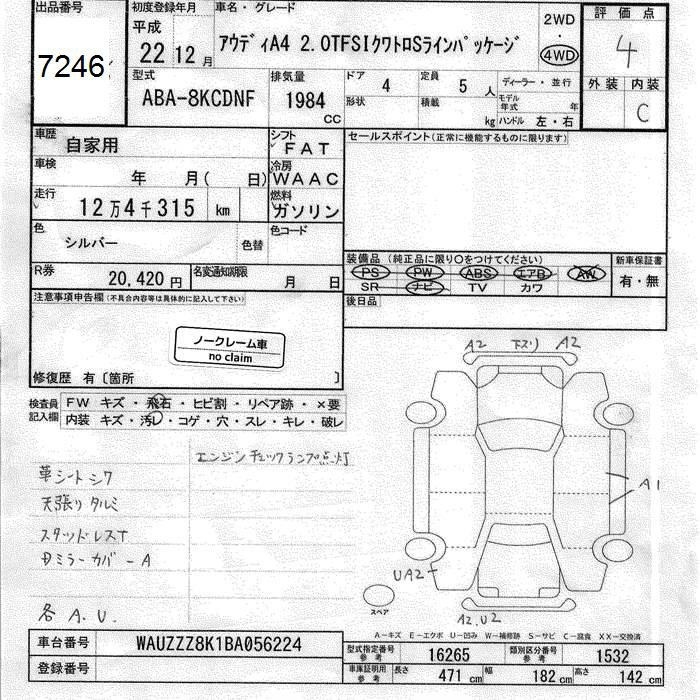 出品番号
7246
初度登録年月
平成
22 12 月
車名・グレード
アウディA4 2.0TFSIクワトロSラインパッケージ
2WD
・
4WD
評価点
4
外装 内装
C
型式
ABA-8KCDNF
排気量
1984
CC
ドア
4
形状
定員
5 人
積載
kg
ディーラー・並行
モデル年式 年
ハンドル 左・右
車歴
自家用
シフト
FAT
車検
年 月( 日)
冷房
WAAC
走行
12万4千315 km
燃料
ガソリン
色
シルバー
色替
色コード
R券
20,420 円
名変通知期限
月 日
セールスポイント(正常に機能するものに限ります)
装備品 (純正品に限り○をつけてください)
PS PW ABS エアB AW
SR ナビ TV カワ
新車保証書
有・無
後日品
注意事項申告欄(不具合内容等は具体的に記入して下さい)
ノークレーム車
no claim
修復歴 有〔箇所 〕
検査員記入欄
FW キズ・飛石・ヒビ割・リペア跡・×要
内装 キズ・汚レ・コゲ・穴・スレ・キレ・破レ
エンジンチェックランプ点灯
革シートシワ
天張りタルミ
スタッドレスT
ミラーカバー A
各 A.U.
A2 下スリ A2
A1
UA2
A2.U2
スペア
A-キズ E-エクボ U-凹み W-補修跡 S-サビ C-腐食 XX-交換済
車台番号
WAUZZZ8K1BA056224
登録番号
型式指定番号 参考
16265
類別区分番号 参考
1532
車庫証明用 参考
長さ 471 cm 幅 182 cm 高さ 142 cm